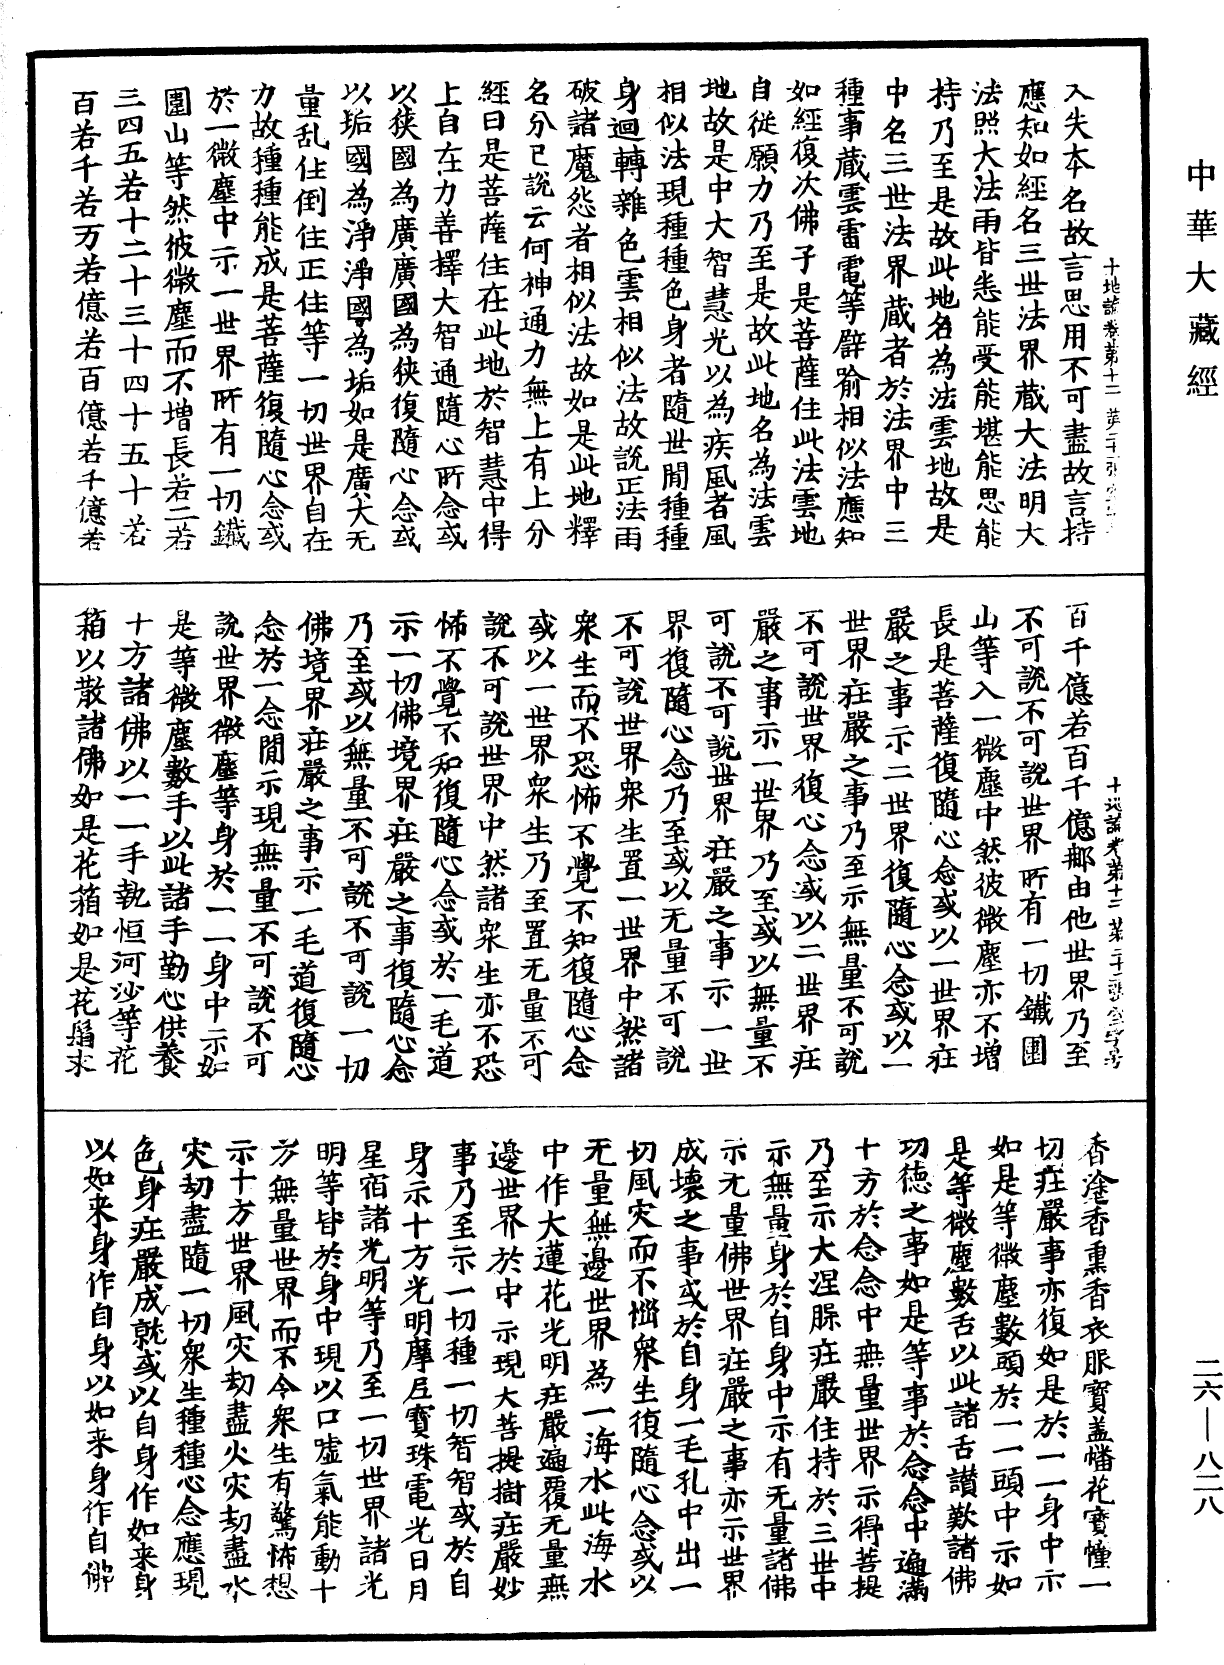 中華大藏經
入失本名故言思用不可盡故言持
應知如經名三世法界藏大法明大
法照大法雨皆悉能受能堪能思能
持乃至是故此地名為法雲地故是
中名三世法界藏者於法界中三
種事藏雲雷電等譬喻相似法應知
如經復次佛子是菩薩住此法雲地
自從願力乃至是故此地名為法雲
地故是中大智慧光以為疾風者風
相似法現種種色身者隨世閒種種
身迴轉雜色雲相似法故說正法雨
破諸魔怨者相似法故如是此地釋
名分已說云何神通力無上有上分
經曰是菩薩住在此地於智慧中得
上自在力善擇大智通隨心所念或
以狹國為廣廣國為狹復隨心念或
以垢國為淨淨國為垢如是廣大无
量乱住倒住正住等一切世界自在
力故種種能成是菩薩復隨心念或
於一微塵中示一世界所有一切鐵
圍山等然彼微塵而不增長若二若
三四五若十二十三十四十五十若
百若千若万若億若百億若千億若
十地論卷第十二
百千億若百千億那由他世界乃至
不可說不可說世界所有一切鐵圍
山等入一微塵中然彼微塵亦不增
長是菩薩復隨心念或以一世界莊
嚴之事示二世界復隨心念或以一
世界莊嚴之事乃至示無量不可說
不可說世界復心念或以二世界莊
嚴之事示一世界乃至或以無量不
可說不可說世界莊嚴之事示一世
界復隨心念乃至或以无量不可說
不可說世界眾生置一世界中然諸
眾生而不恐怖不覺不知復隨心念
或以一世界眾生乃至置无量不可
說不可說世界中然諸眾生亦不恐
怖不覺不知復隨心念或於一毛道
示一切佛境界莊嚴之事復隨心念
乃至或以無量不可說不可說一切
佛境界莊嚴之事示一毛道復隨心
念於一念閒示現無量不可說不可
說世界微塵等身於一一身中示如
是等微塵數手以此諸手勤心供養
十方諸佛以一一手執恒河沙等花
箱以散諸佛如是花箱如是花鬘末
十地論卷第十二
香塗香熏香衣服寶蓋幡花寶幢一
切莊嚴事亦復如是於一一身中示
如是等微塵數頭於一一頭中示如
是等微塵數舌以此諸舌讃歎諸佛
功德之事如是等事於念念中遍滿
十方於念念中無量世界示得菩提
乃至示大涅槃莊嚴住持於三世中
示無量身於自身中示有无量諸佛
示无量佛世界莊嚴之事亦示世界
成壞之事或於自身一毛孔中出一
切風灾而不惱眾生復隨心念或以
无量無邊世界為一海水此海水
中作大蓮花光明莊嚴遍覆无量無
邊世界於中示現大菩提樹莊嚴妙
事乃至示一切種一切智智或於自
身示十方光明摩尼寶珠電光日月
星宿諸光明等乃至一切世界諸光
明等皆於身中現以口噓氣能動十
方無量世界而不令眾生有驚怖想
示十方世界風灾劫盡火灾劫盡水
灾劫盡隨一切眾生種種心念應現
色身莊嚴成就或以自身作如来身
以如来身作自身以如来身作自佛
二六—八二八